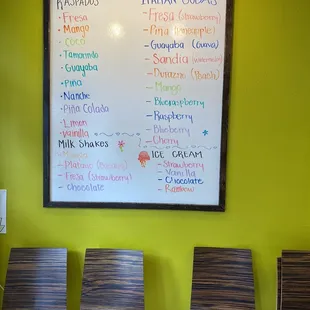 RASPADOS
• Fresa
• Mango
• Coco
• Tamarindo
• Guayaba
• Piña
• Nanche
• Piña Colada
• Limon
• Vainilla
Milk Shakes
- Mango
- Platano (Banana)
- Fresa (strawberry)
- chocolate
ITALIAN SODAS
- Fresa (strawberry)
- Piña (pineapple)
- Guayaba (Guava)
- Sandia (watermelon)
- Durazno (Peach)
- Mango
- Blueraspberry
- Raspberry
- Blueberry
- Cherry
ICE CREAM
- Strawberry
- Vanilla
- Chocolate
- Rainbow